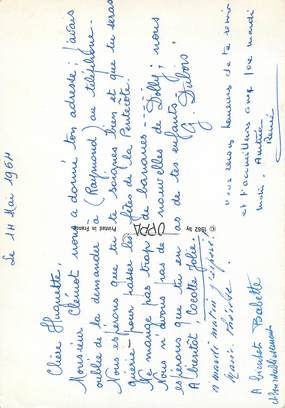 Le 14 Mai 1964
Chère Huguette,
Monsieur Clémot nous a donné ton adresse ; j'avais
oublié de la demander à (Raymond) au téléphone.
Nous espérons que tu te soignes bien et que tu seras
guérie pour passer les fêtes de la Pentecôte.
Ne mange pas trop de bananes ---
Nous n'avons pas de nouvelles de Dolly ; nous
espérons que tu en as de tes enfants.
A bientôt, Cocotte Jolie.
G. Dubois
© 1963 by OPPA Printed in France
nous serons heureux de te voir
et t'accueillerons avec joie mardi
matin. Amitiés
René
A bientôt Babette